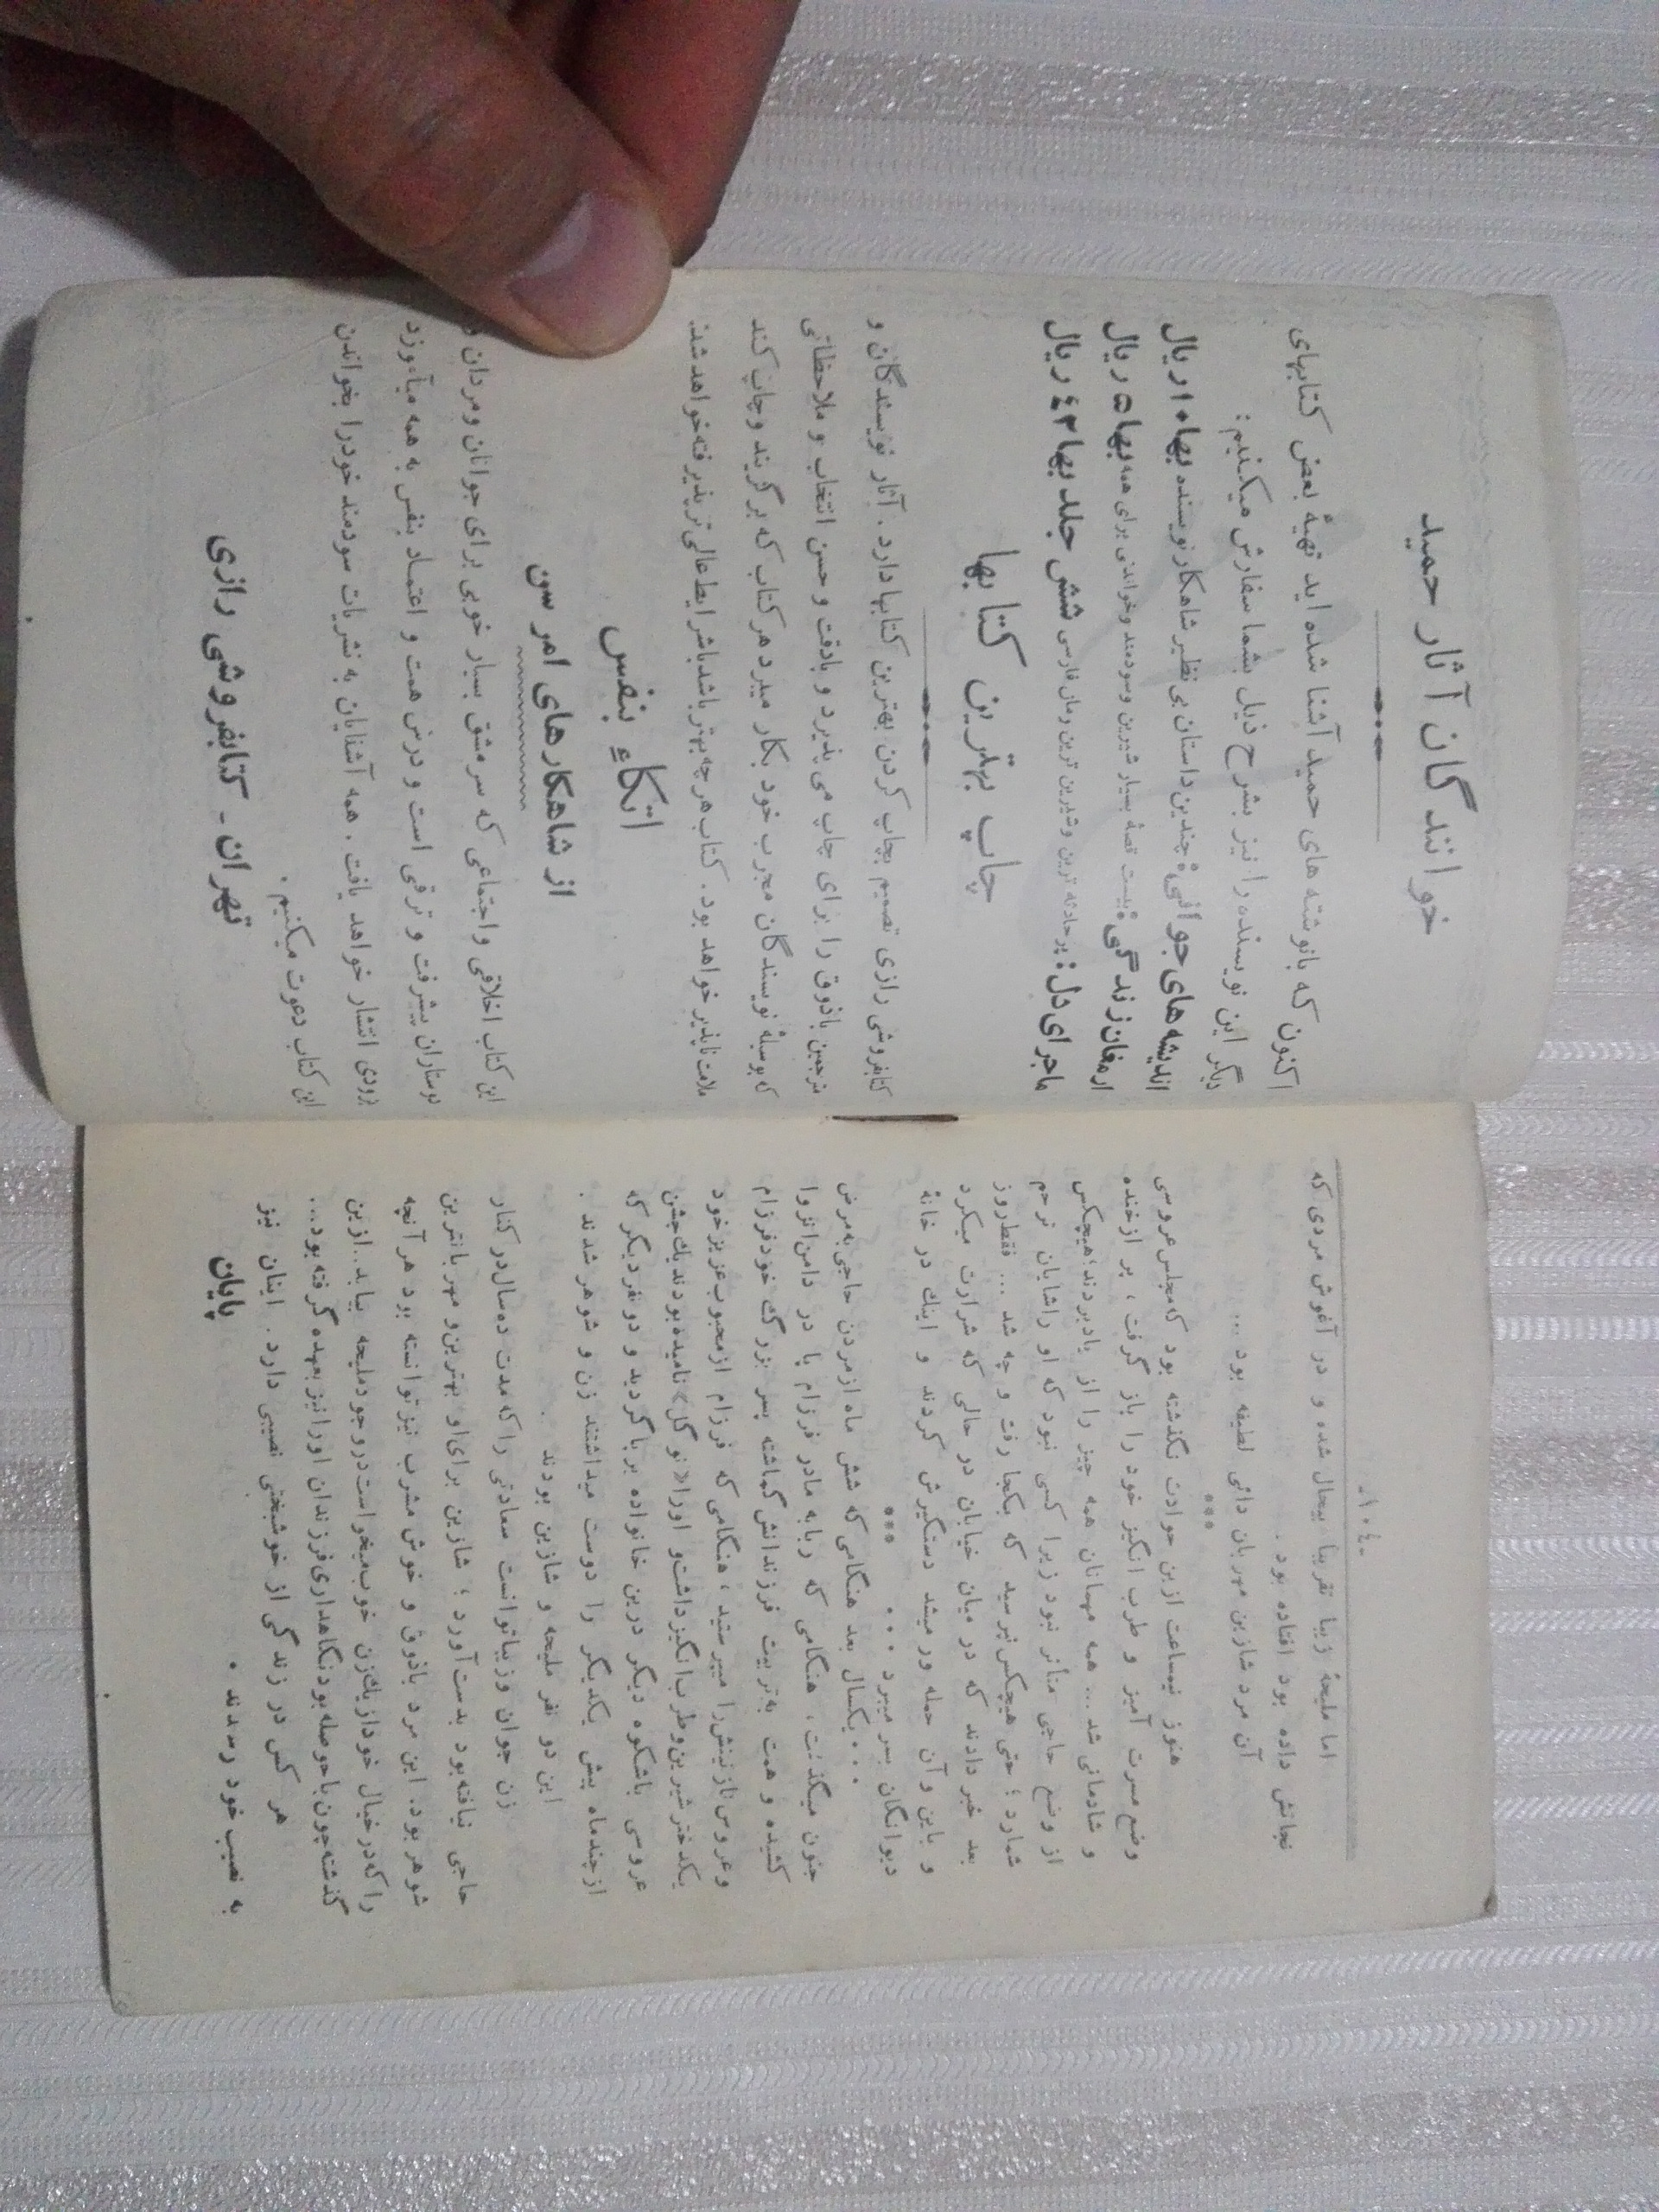 -۱۰٤-
اما ملیحهٔ زیبا تقریبا بیحال شده و در آغوش مردی که
نجاتش داده بود افتاده بود .
آن مرد شازین مهربان دائی لطیفه بود ...
***
هنوز نیمساعت ازین حوادث نگذشته بود که مجلس عروسی
وضع مسرت آمیز و طرب انگیز خود را باز گرفت ، پر از خنده
و شادمانی شد ... همه مهمانان همه چیز را از یاد بردند؛ هیچکس
از وضع حاجی متأثر نبود زیرا کسی نبود که او را شایان ترحم
شمارد ؛ حتی هیچکس نپرسید که بکجا رفت و چه شد ... فقط روز
بعد خبر دادند که در میان خیابان در حالی که شرارت میکرد
و باین و آن حمله ور میشد دستگیرش کردند و اینك در خانهٔ
دیوانگان بسر میبرد . . .
***
. . . یکسال بعد هنگامی که شش ماه از مردن حاجی به مرض
جنون میگذشت ، هنگامی که ربابه مادر فرزام پا در دامن انزوا
کشیده و همت به تربیت فرزندانش گماشته پسر بزرگ خود فرزام
وعروس نازنینش را میپرستید ، هنگامی که فرزام از محبوب عزیز خود
یکدختر شیرین و طرب انگیز داشت و او را «نو گل» نامیده بودند یك جشن
عروسی باشکوه دیگر درین خانواده برپا گردید و دو نفر دیگر که
از چند ماه پیش یکدیگر را دوست میداشتند زن و شوهر شدند .
این دو نفر ملیحه و شازین بودند .
زن جوان و زیبا توانست سعادتی را که مدت ده سال در کنار
حاجی نیافته بود بدست آورد ؛ شازین برای او بهترین و مهربانترین
شوهر بود . این مرد باذوق و خوش مشرب نیز توانسته بود هر آنچه
را که در خیال خود از یك زن خوب میخواست در وجود ملیحه بیابد . ازین
گذشته چون با حوصله بود نگاهداری فرزندان او را نیز بعهده گرفته بود ...
هر کس در زندگی از خوشبختی نصیبی دارد . اینان نیز
به نصیب خود رسیدند .
پایان
خوانندگان آثار حمید
اکنون که بانوشته های حمید آشنا شده اید تهیهٔ بعض کتابهای
دیگر این نویسنده را نیز بشرح ذیل بشما سفارش میکنیم :
اندیشه های جوانی : چندین داستان بی نظیر شاهکار نویسنده بها ۱۰ ریال
ارمغان زندگی : بیست قصهٔ بسیار شیرین وسودمند وخواندنی برای همه بها ۵ ریال
ماجرای دل : پر حادثه ترین وشیرین ترین رمان فارسی شش جلد بها ٤٢ ریال
چاپ بهترین کتابها
کتابفروشی رازی تصمیم بچاپ کردن بهترین کتابها دارد . آثار نویسندگان و
مترجمین باذوق را برای چاپ می پذیرد و بادقت و حسن انتخاب و ملاحظاتی
که بوسیلهٔ نویسندگان مجرب خود بکار میبرد هر کتاب که برگزیند وچاپ کند
ملامت ناپذیر خواهد بود . کتاب هر چه بهتر باشد باشرایط عالی تر پذیرفته خواهد شد.
اتکاءِ بنفس
از شاهکارهای امرسون
این کتاب اخلاقی واجتماعی که سرمشق بسیار خوبی برای جوانان ومردان و
دوستاران پیشرفت و ترقی است و درس همت و اعتماد بنفس به همه میآموزد
بزودی انتشار خواهد یافت . همه آشنایان به نشریات سودمند خود را بخواندن
این کتاب دعوت میکنیم .
تهران - کتابفروشی رازی